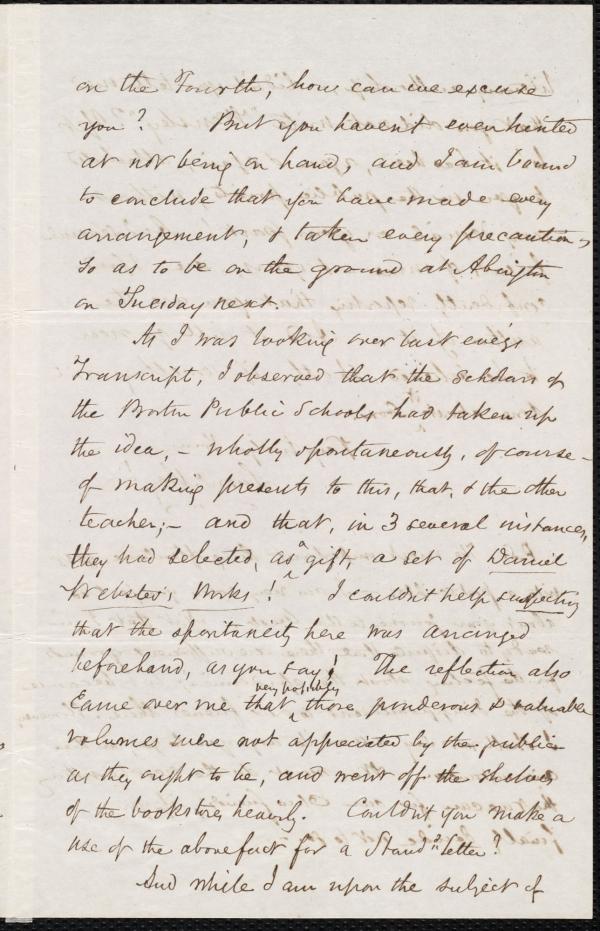 on the Fourth, how can we excuse
you? But you havent even hinted
at not being on hand, and I am bound
to conclude that you have made every
arrangement, & taken every precaution,
so as to be on the ground at Abington
on Tuesday next.
As I was looking over last eve'gs
Transcript, I observed that the scholars of
the Boston Public Schools had taken up
the idea, - wholly spontaneously, of course -
of making presents to this, that, & the other
teacher; - and that, in 3 several instances,
they had selected, as a gift, a set of Daniel
Webster's Works! I couldn't help suspecting
that the spontaneity here was arranged
beforehand, as you say! The reflection also
came over me that very possibly those ponderous & valuable
volumes were not appreciated by the public
as they ought to be, and went off the shelves
of the bookstores heavily. Couldn't you make a
use of the above fact for a Stand'd letter?
And while I am upon the subject of